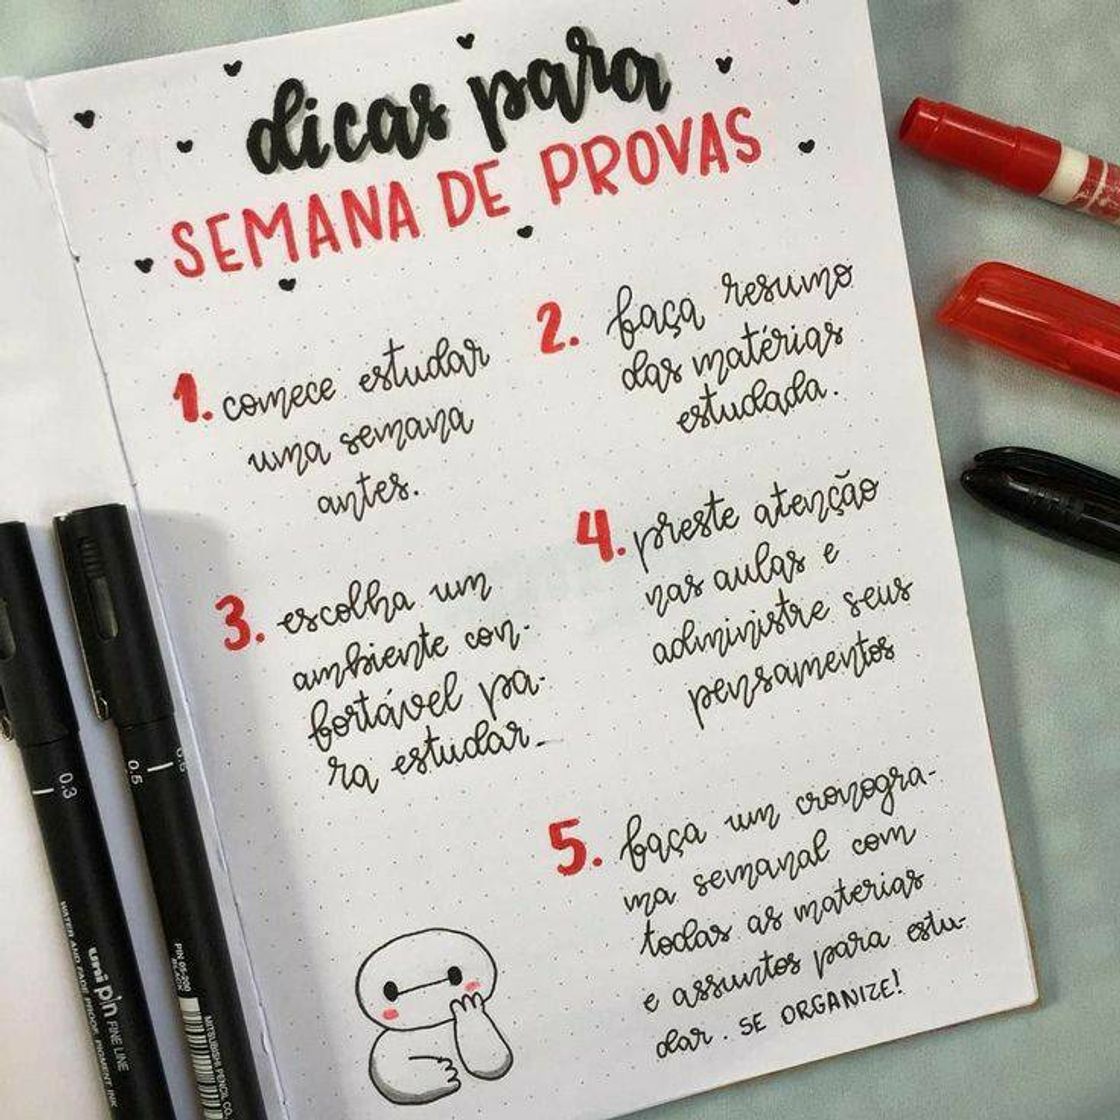 dicas para
SEMANA DE PROVAS
1. comece estudar
uma semana
antes.
2. faça resumo
das matérias
estudada.
3. escolha um
ambiente con-
fortável pa-
ra estudar.
4. preste atenção
nas aulas e
administre seus
pensamentos
5. faça um cronogra-
ma semanal com
todas as materias
e assuntos para estu-
dar. SE ORGANIZE!
0.3
0.5
0.5
WATER AND FADE PROOF, PIGMENT INK
uni pin FINE LINE
PIN 05-200
BLACK
MITSUBISHI PENCIL CO.